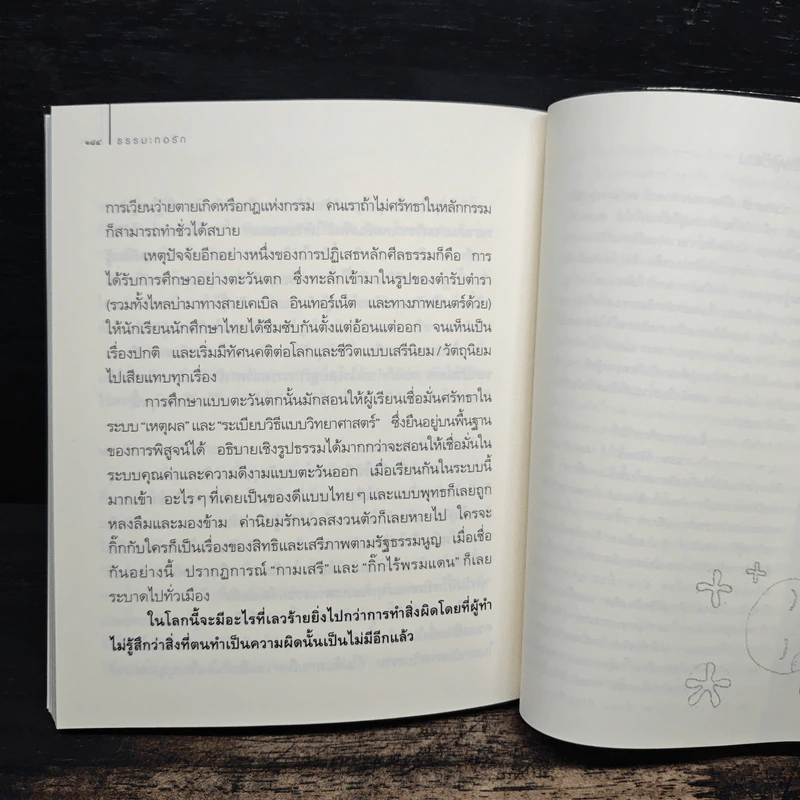 ๑๘๔ ธรรมะทอรัก
การเวียนว่ายตายเกิดหรือกฎแห่งกรรม คนเราถ้าไม่ศรัทธาในหลักกรรม
ก็สามารถทำชั่วได้สบาย
เหตุปัจจัยอีกอย่างหนึ่งของการปฏิเสธหลักศีลธรรมก็คือ การ
ได้รับการศึกษาอย่างตะวันตก ซึ่งทะลักเข้ามาในรูปของตำรับตำรา
(รวมทั้งไหลบ่ามาทางสายเคเบิล อินเทอร์เน็ต และทางภาพยนตร์ด้วย)
ให้นักเรียนนักศึกษาไทยได้ซึมซับกันตั้งแต่อ้อนแต่ออก จนเห็นเป็น
เรื่องปกติ และเริ่มมีทัศนคติต่อโลกและชีวิตแบบเสรีนิยม/วัตถุนิยม
ไปเสียแทบทุกเรื่อง
การศึกษาแบบตะวันตกนั้นมักสอนให้ผู้เรียนเชื่อมั่นศรัทธาใน
ระบบ “เหตุผล” และ “ระเบียบวิธีแบบวิทยาศาสตร์” ซึ่งยืนอยู่บนพื้นฐาน
ของการพิสูจน์ได้ อธิบายเชิงรูปธรรมได้มากกว่าจะสอนให้เชื่อมั่นใน
ระบบคุณค่าและความดีงามแบบตะวันออก เมื่อเรียนกันในระบบนี้
มากเข้า อะไรๆ ที่เคยเป็นของดีแบบไทยๆ และแบบพุทธก็เลยถูก
หลงลืมและมองข้าม ค่านิยมรักนวลสงวนตัวก็เลยหายไป ใครจะ
กิ๊กกับใครก็เป็นเรื่องของสิทธิและเสรีภาพตามรัฐธรรมนูญ เมื่อเชื่อ
กันอย่างนี้ ปรากฏการณ์ “กามเสรี” และ “กิ๊กไร้พรมแดน” ก็เลย
ระบาดไปทั่วเมือง
ในโลกนี้จะมีอะไรที่เลวร้ายยิ่งไปกว่าการทำสิ่งผิดโดยที่ผู้ทำ
ไม่รู้สึกว่าสิ่งที่ตนทำเป็นความผิดนั้นเป็นไม่มีอีกแล้ว